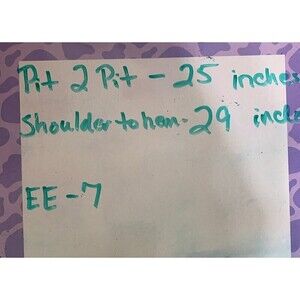 Pit 2 Pit - 25 inches
Shoulder to hem - 29
EE - 7